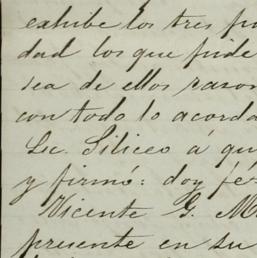 exhibe los tres po
dad los que pide
sea de ellos razon
con todo lo acorda
Lic. Siliceo á qu
y firmó: doy fé.
Vicente G. M
presente en su